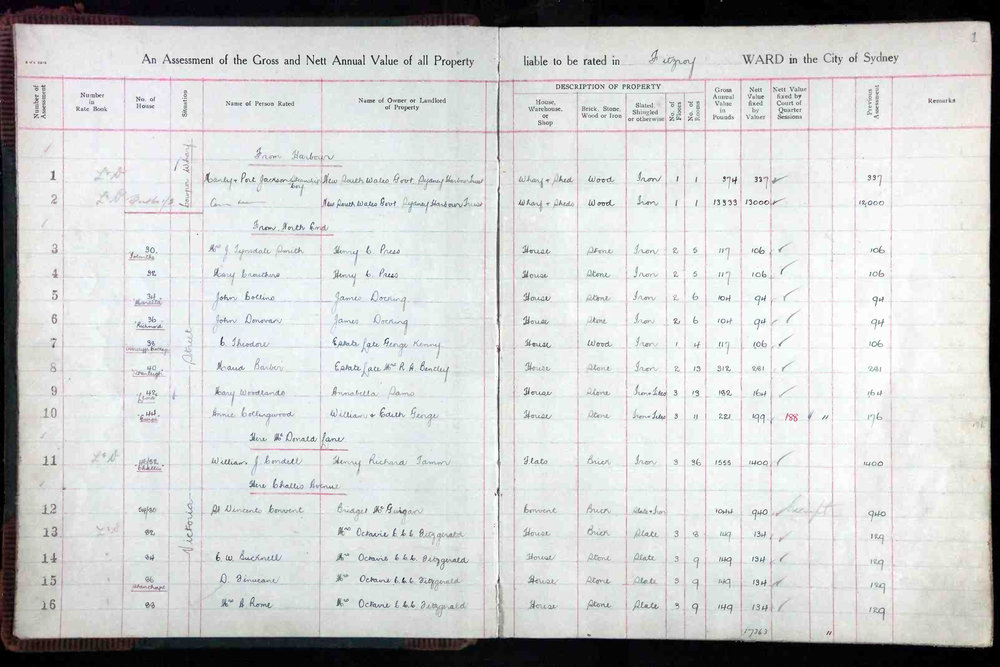 1
An Assessment of the Gross and Nett Annual Value of all Property liable to be rated in Fitzroy WARD in the City of Sydney
DESCRIPTION OF PROPERTY
Number of Assessment | Number in Rate Book | No. of House | Situation | Name of Person Rated | Name of Owner or Landlord of Property | House, Warehouse, or Shop | Brick, Stone, Wood or Iron | Slated, Shingled or otherwise | No. of Floors | No. of Rooms | Gross Annual Value in Pounds | Nett Value fixed by Valuer | Nett Value fixed by Court of Quarter Sessions | Previous Assessment | Remarks
Cowper Wharf
From Harbour
1 Manly & Port Jackson Steamship Coy New South Wales Govt Sydney Harbour Trust Wharf & Shed Wood Iron 1 1 374 337 337
2 New South Wales Govt Sydney Harbour Trust Wharf & Sheds Wood Iron 1 1 13333 13000 12,000
Victoria Street
From North End
3 30 Mrs J. Tyrndale Smith Henry C. Press House Stone Iron 2 5 117 106 106
4 32 Mary Crouthers Henry C. Press House Stone Iron 2 5 117 106 106
5 34 John Collins James Docking House Stone Iron 2 6 104 94 94
6 36 Richmond John Donovan James Docking House Stone Iron 2 6 104 94 94
7 38 C. Theodore Estate late George Kenny House Wood Iron 1 4 117 106 106
8 40 Maud Barber Estate late Mrs R. A. Bentley House Stone Iron 2 13 312 281 281
9 42 Mary Woodlands Annabella Sams House Stone Iron & Tiles 3 13 182 164 164
10 44 Annie Collingwood William & Edith George House Stone Iron & Tiles 3 11 221 199 188 " 176
Here McDonald Lane
11 46/52 Challis William J. Condell Henry Richard Tamm Flats Brick Iron 3 36 1555 1400 1400
Here Challis Avenue
12 St Vincents Convent Bridget McGuigan Convent Brick Slate & Iron 1044 940 Exempt 940
13 82 Mrs Octavie C.C.C. Fitzgerald House Brick Slate 3 8 149 134 129
14 84 C. W. Bucknell Mrs Octavie C.C.C. Fitzgerald House Stone Slate 3 9 149 134 129
15 86 D. Finucane Mrs Octavie C.C.C. Fitzgerald House Stone Slate 3 9 149 134 129
16 88 Mrs B Rome Mrs Octavie C.C.C. Fitzgerald House Stone Slate 3 9 149 134 129
17363 "